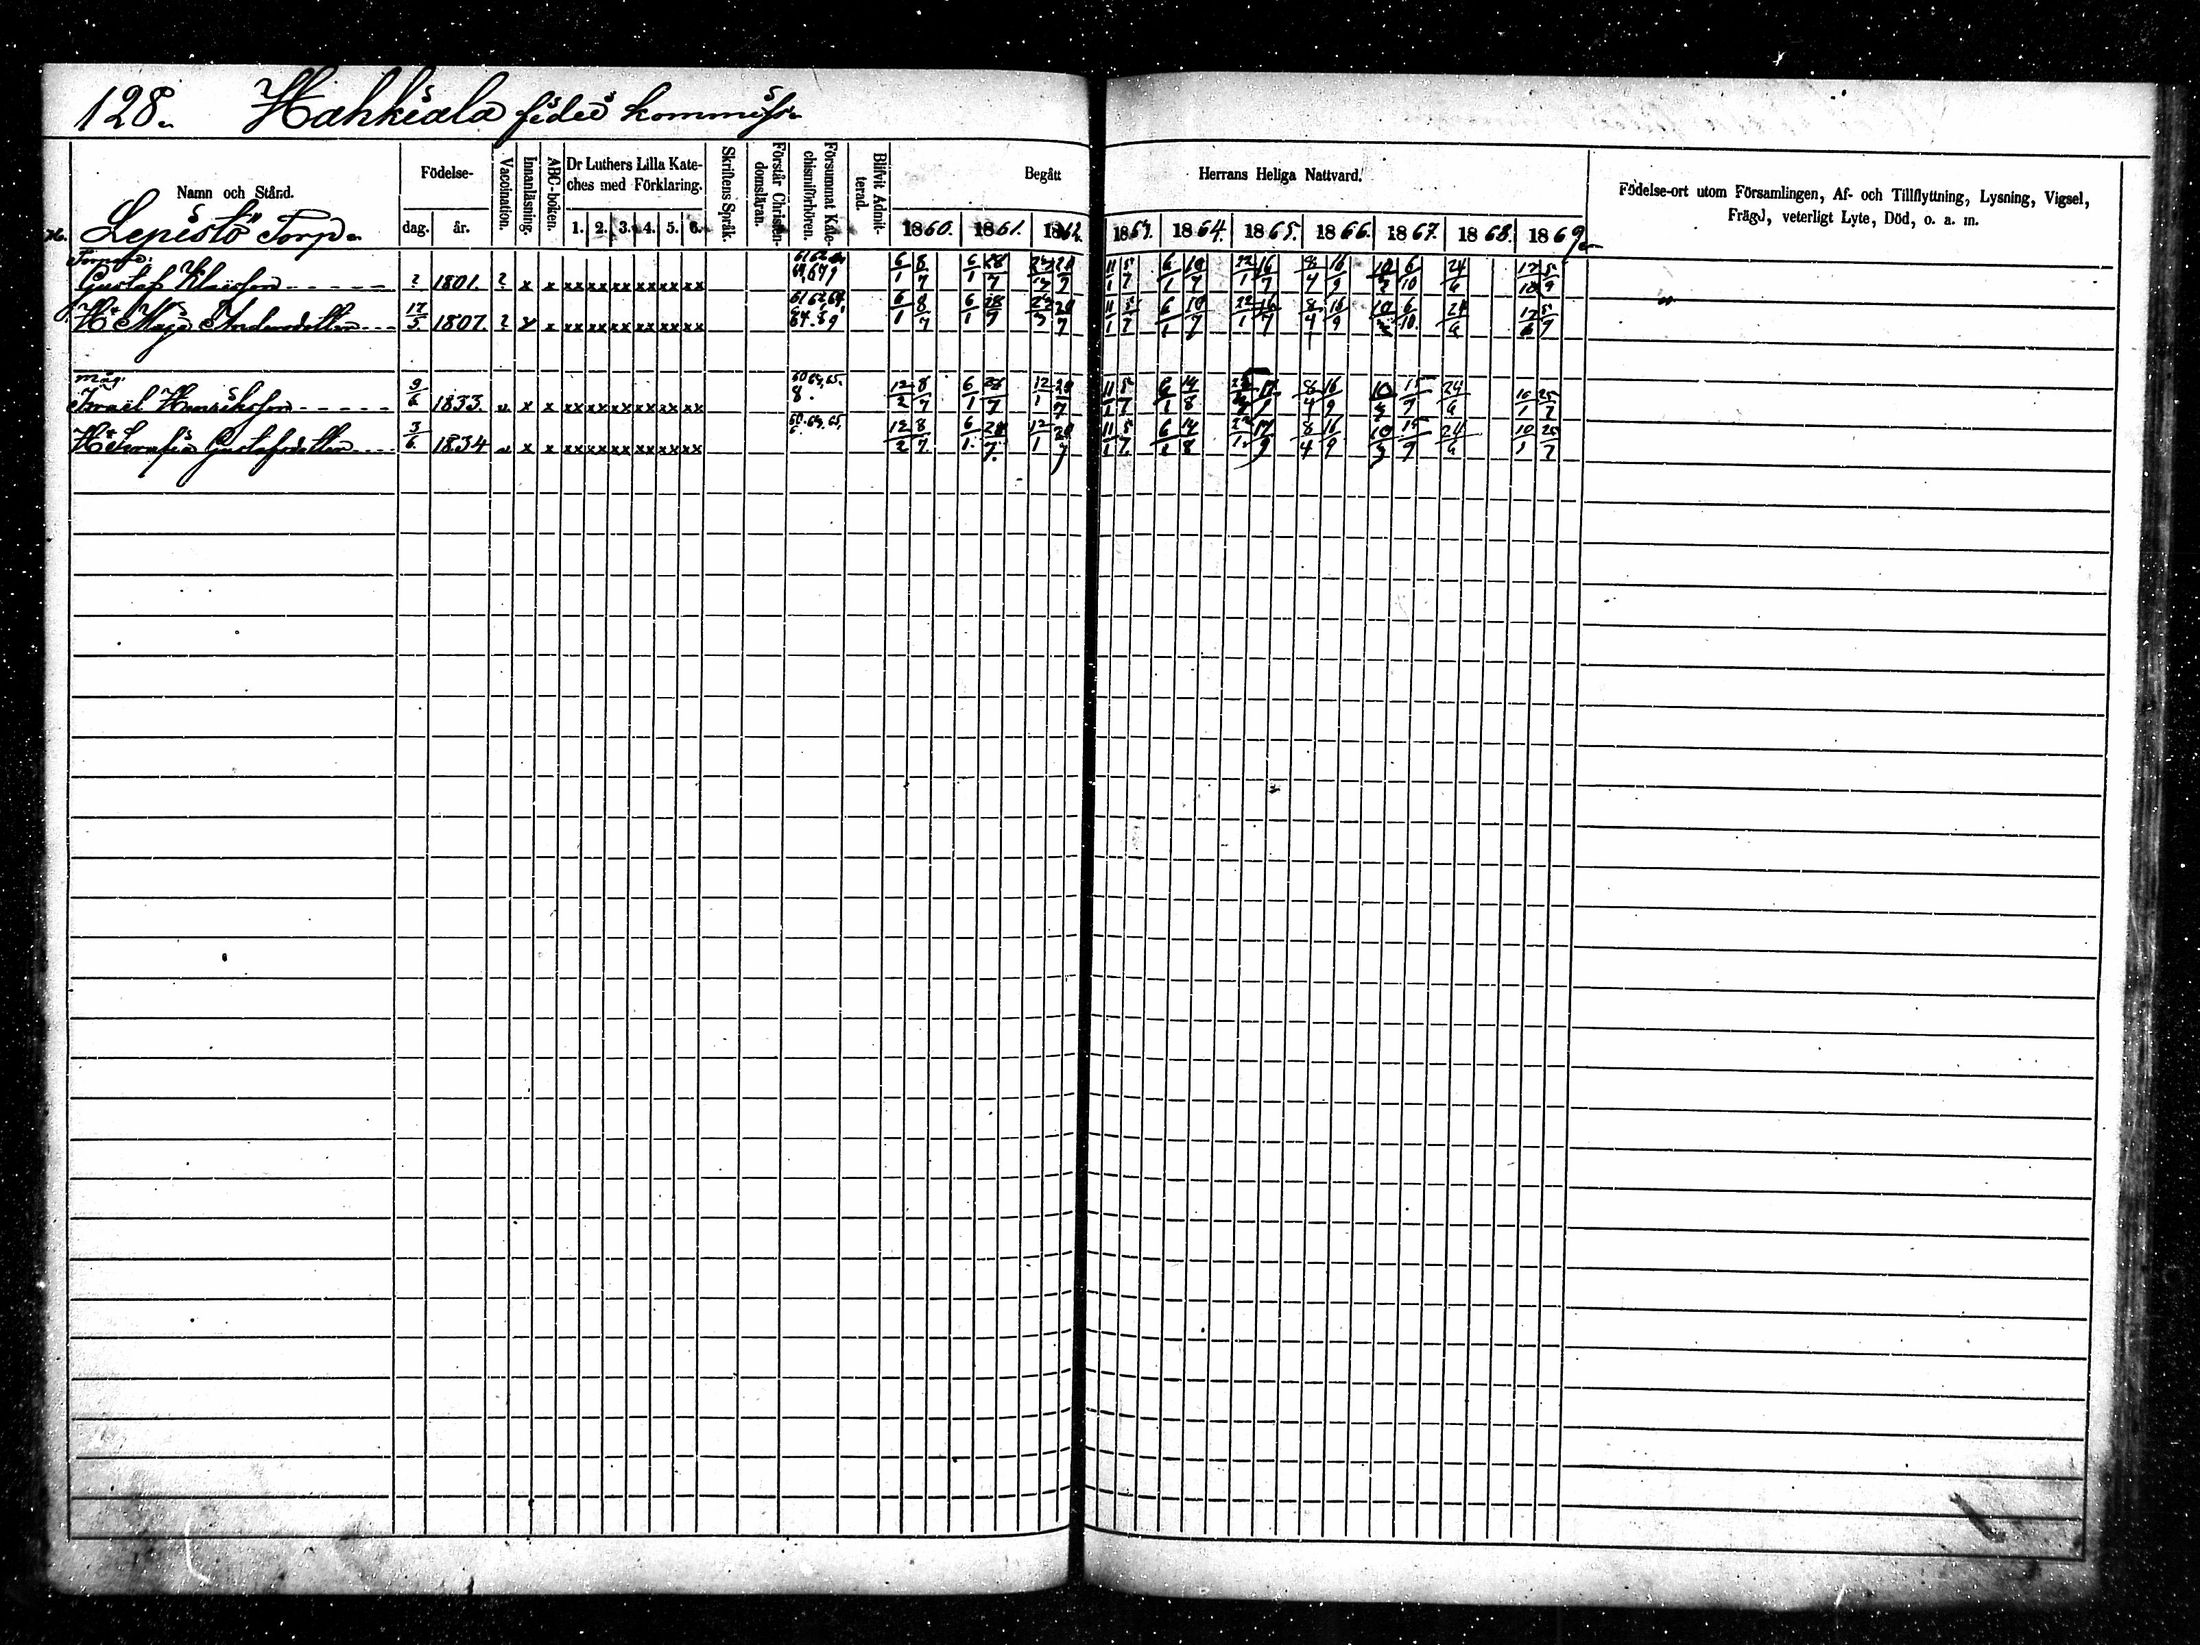 128. Hahkiala fidei kommiss.
Namn och Stånd.
Födelse-
dag. år.
Vaccination.
Innanläsning.
ABC-boken.
Dr Luthers Lilla Kate-
ches med Förklaring.
1. 2. 3. 4. 5. 6.
Skriftens Språk.
Förstår Christen-
domsläran.
Försummat Kate-
chismiförhören.
Blifvit Admit-
terad.
Begått Herrans Heliga Nattvard.
1860. 1861. 1862. 1863. 1864. 1865. 1866. 1867. 1868. 1869.
Födelse-ort utom Församlingen, Af- och Tillflyttning, Lysning, Vigsel,
Frägd, veterligt Lyte, Död, o. a. m.
Lepistö Torp.
Gustaf ? 1801. ? x x xx xx xx xx xx xx 6/1 8/7 6/1 28/7 11/1 5/7 6/1 10/7 22/1 16/7 8/4 16/9 10/3 6/10 24/6
Hu Maja Andersdotter 17/5 1807. ? x x xx xx xx xx xx xx 6/1 8/7 6/1 28/7 11/1 5/7 6/1 10/7 22/1 16/7 8/4 16/9 10/3 6/10 24/6
måg
Israël Henriksson 9/6 1833. v x x xx xx xx xx xx xx 12/2 8/7 6/1 28/7 12/1 20/7 11/1 5/7 6/1 14/8 8/4 16/9 10/3 15/9 24/6 10/1 25/7
Hu Serafia Gustafsdotter 3/6 1834 v x x xx xx xx xx xx xx 12/2 8/7 6/1 28/7 12/1 20/7 11/1 5/7 6/1 14/8 22/1 17/9 8/4 16/9 10/3 15/9 24/6 10/1 25/7